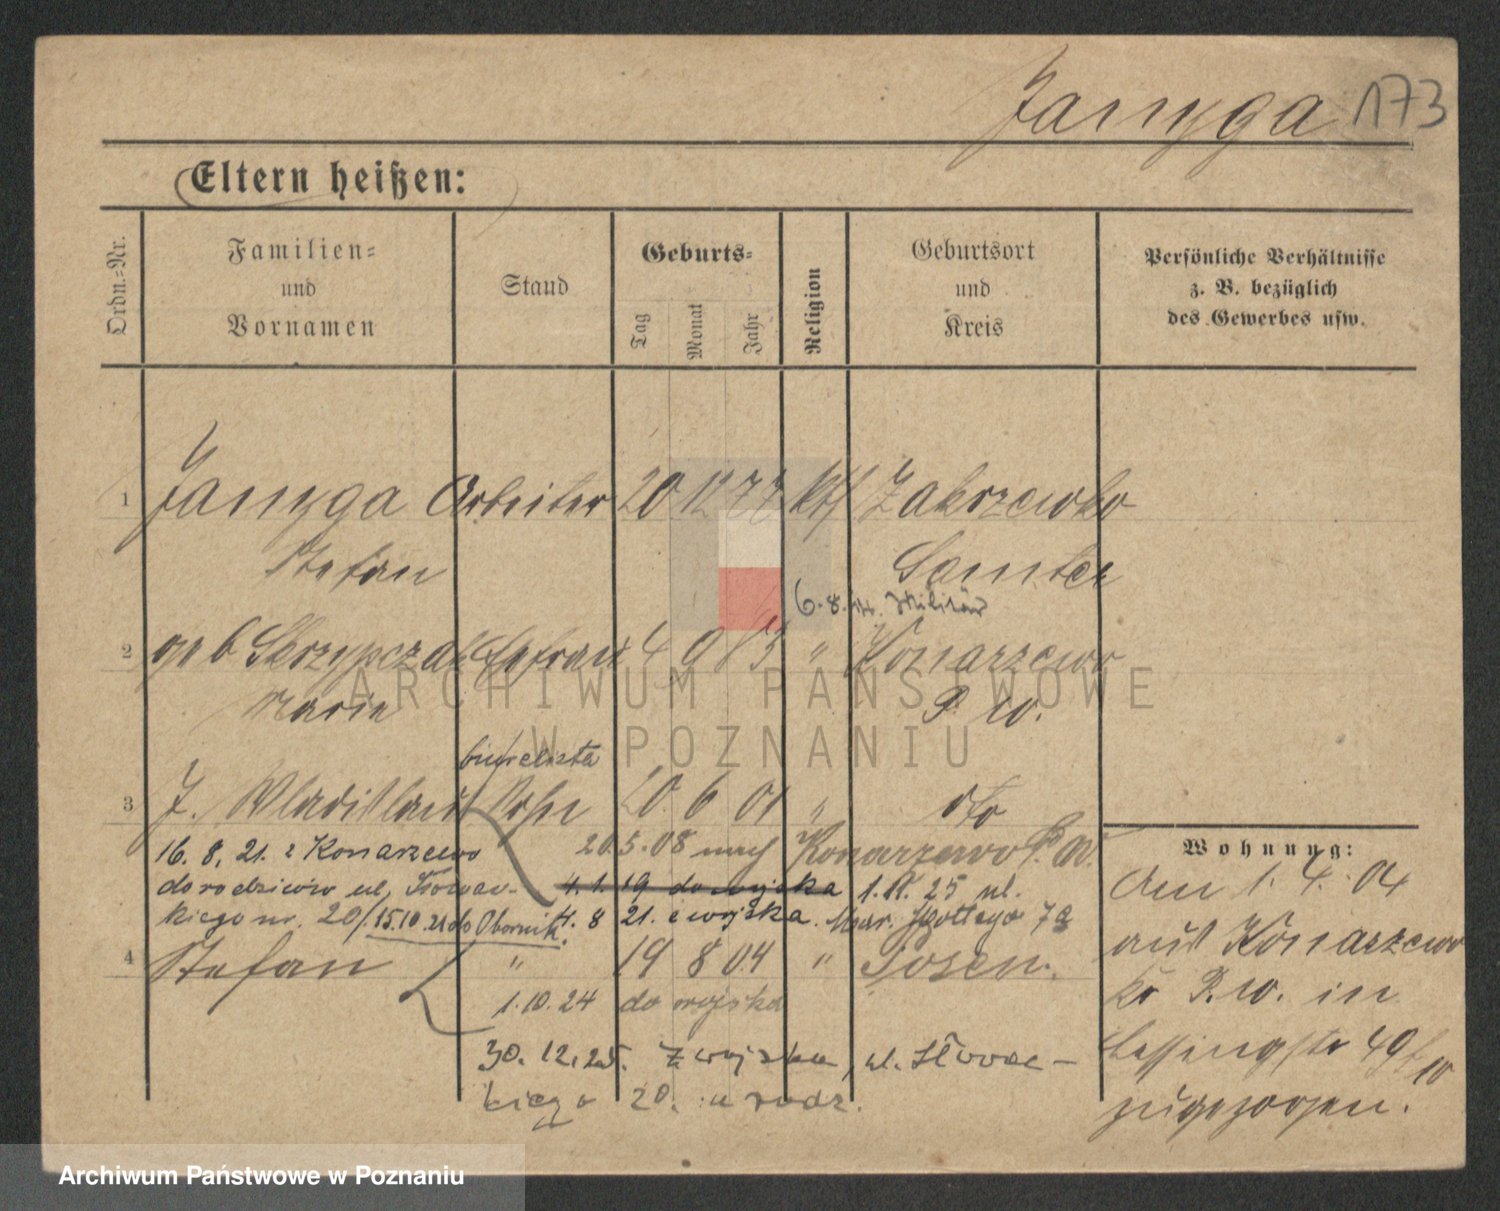 Jamyga 173
Eltern heißen:
Ordn.-Nr.
Familien- und Vornamen
Stand
Geburts-
Tag Monat Jahr
Religion
Geburtsort und Kreis
Persönliche Verhältnisse z. B. bezüglich des Gewerbes usw.
1 Jamyga Arbeiter 20 12 77 kth Zakrzewko
Stefan Samter
6. 8. Militär
2 geb Skrzypczak Ehefrau 4 9 83 " Konarzewo
Marie P. w.
biuralista
3 J. Wladislaus Sohn 20. 6 01 " dto
16. 8. 21. z Konarzewo 20.5.08 nach Konarzewo P. W.
do rodziców ul. Słowac- 4. 1. 19 do wojska 1.11. 25 ul.
kiego nr. 20/. 15.10.21 do Obornik. 4. 8 21. z wojska. Mar. 7a
4 Stefan " 19 8 04 " Posen.
1.10.24 do wojska
30. 12. 25. z wojska, ul. Słowac-
kiego 20. u rodz.
Wohnung:
Am 1. 4. 04
aus Konarzewo
Kr P. w. in
Lessingstr 49/10
zugezogen.
ARCHIWUM PAŃSTWOWE
W POZNANIU
Archiwum Państwowe w Poznaniu